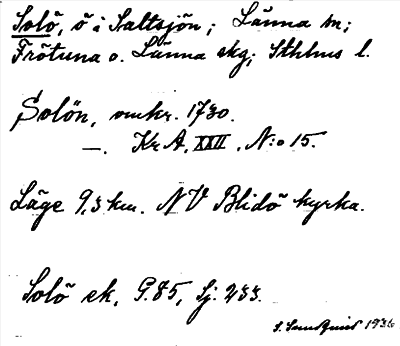 Solö, ö i Saltsjön; Länna sn;
Frötuna o. Länna skg; Sthlms l.
Solön, omkr. 1730.
—. Kr A, XXII, N:o 15.
Läge 9,3 km. NV Blidö kyrka.
Solö ek. G.85, Sj. 233.
S. Lundquist 1936